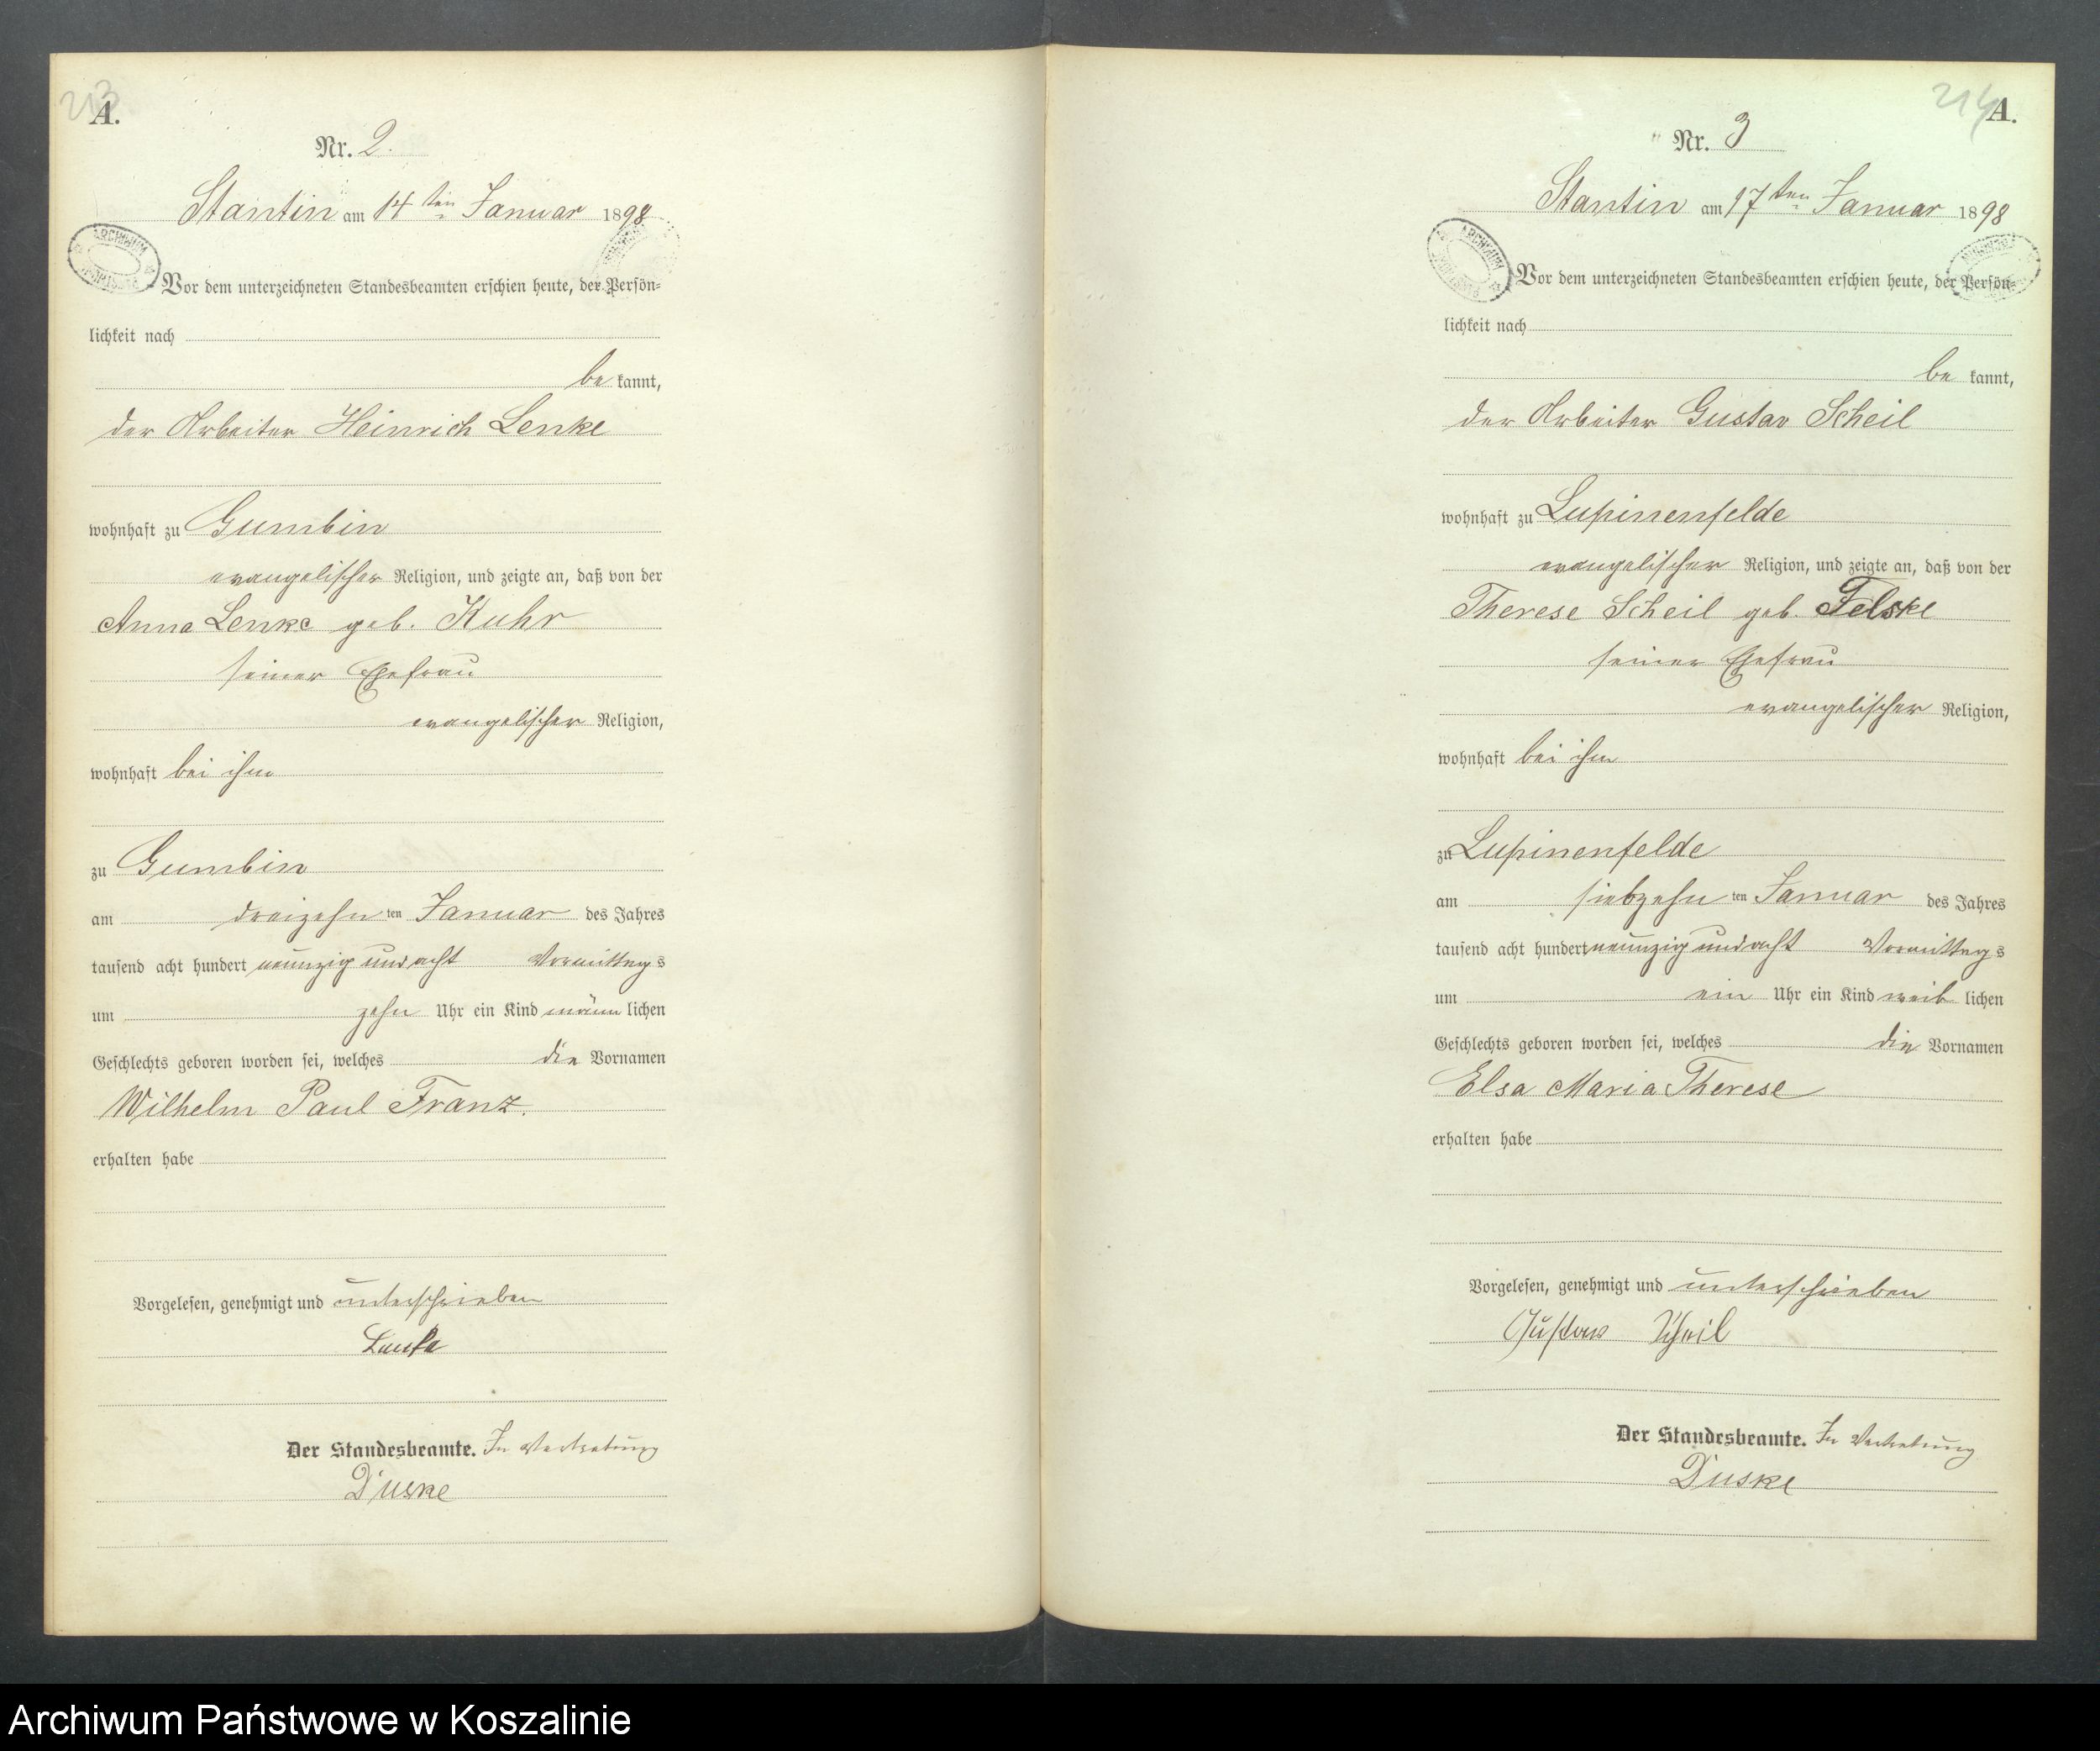 213
A.
Nr. 2.
Stantin am 14ten Januar 1898
ARCHIWUM
Vor dem unterzeichneten Standesbeamten erschien heute, der Persön-
lichkeit nach
be kannt,
der Arbeiter Heinrich Lenke
wohnhaft zu Gumbin
evangelischer Religion, und zeigte an, daß von der
Anna Lenke geb. Kuhr
seiner Ehefrau
evangelischer Religion,
wohnhaft bei ihm
zu Gumbin
am dreizehn ten Januar des Jahres
tausend acht hundert neunzig und acht Vormittags
um zehn Uhr ein Kind männ lichen
Geschlechts geboren worden sei, welches die Vornamen
Wilhelm Paul Franz.
erhalten habe
Vorgelesen, genehmigt und unterschrieben
Lenke
Der Standesbeamte. In Vertretung
Duske
214
A.
Nr. 3
Stantin am 17ten Januar 1898
ARCHIWUM
Vor dem unterzeichneten Standesbeamten erschien heute, der Persön-
lichkeit nach
be kannt,
der Arbeiter Gustav Scheil
wohnhaft zu Lupinenfelde
evangelischer Religion, und zeigte an, daß von der
Therese Scheil geb. Felske
seiner Ehefrau
evangelischer Religion,
wohnhaft bei ihm
zu Lupinenfelde
am siebzehn ten Januar des Jahres
tausend acht hundert neunzig und acht Vormittags
um ein Uhr ein Kind weib lichen
Geschlechts geboren worden sei, welches die Vornamen
Elsa Maria Therese
erhalten habe
Vorgelesen, genehmigt und unterschrieben
Gustav Scheil
Der Standesbeamte. In Vertretung
Duske
Archiwum Państwowe w Koszalinie